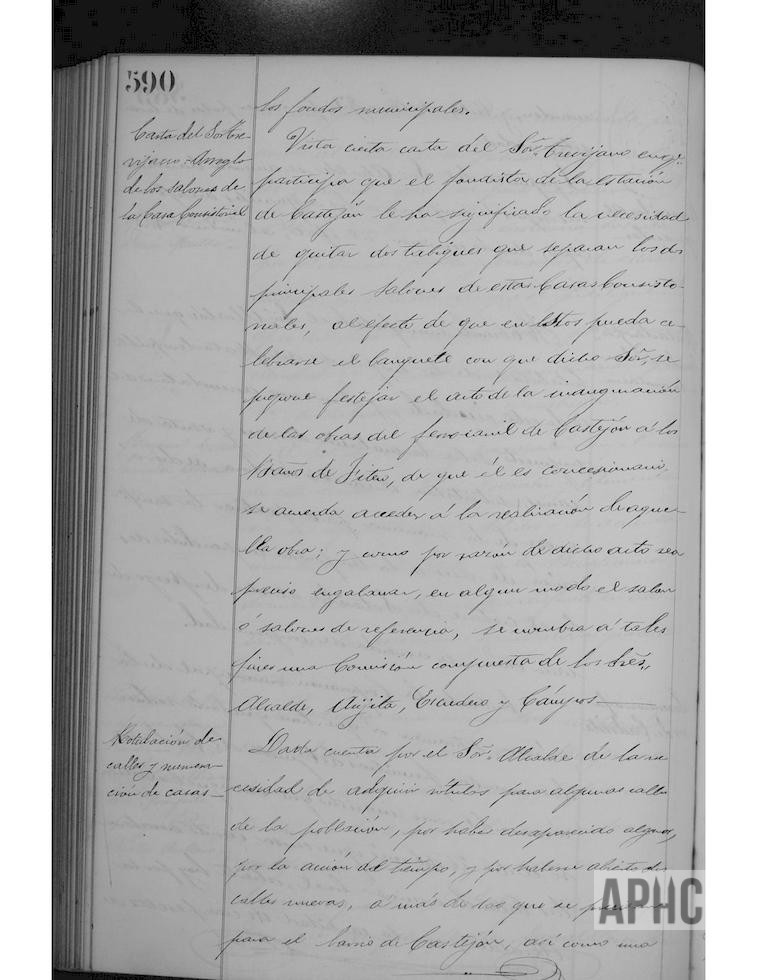 590
los fondos municipales.
Carta del Sor Tre-
vijano = Arreglo
de los salones de
la Casa Consistorial
Vista cierta carta del Sor. Trevijano en q.e
participa que el fondista de la estación
de Castejón le ha significado la necesidad
de quitar dos tabiques que separan los dos
principales salones de estas Casas Consisto-
riales, al efecto de que en estos pueda ce-
lebrarse el banquete con que dicho Sor, se
propone festejar el acto de la inauguración
de las obras del ferrocarril de Castejón á los
Baños de Fitero, de que él es concesionario,
se acuerda acceder á la realización de aque-
lla obra; y como por razón de dicho acto sea
preciso engalanar, en algun modo el salon
ó salones de referencia, se nombra á tales
fines una Comisión compuesta de los Sres.,
Alcalde, Escudero y Cámpos
Rotulación de
calles y numera-
ción de casas
Dada cuenta por el Sor. Alcalde de la ne-
cesidad de adquirir rótulos para algunas calles
de la población, por haber desaparecido algunos,
por la acción del tiempo, y por haberse abierto dos
calles nuevas, a más de los que se
para el barrio de Castejón, así como una
APHC